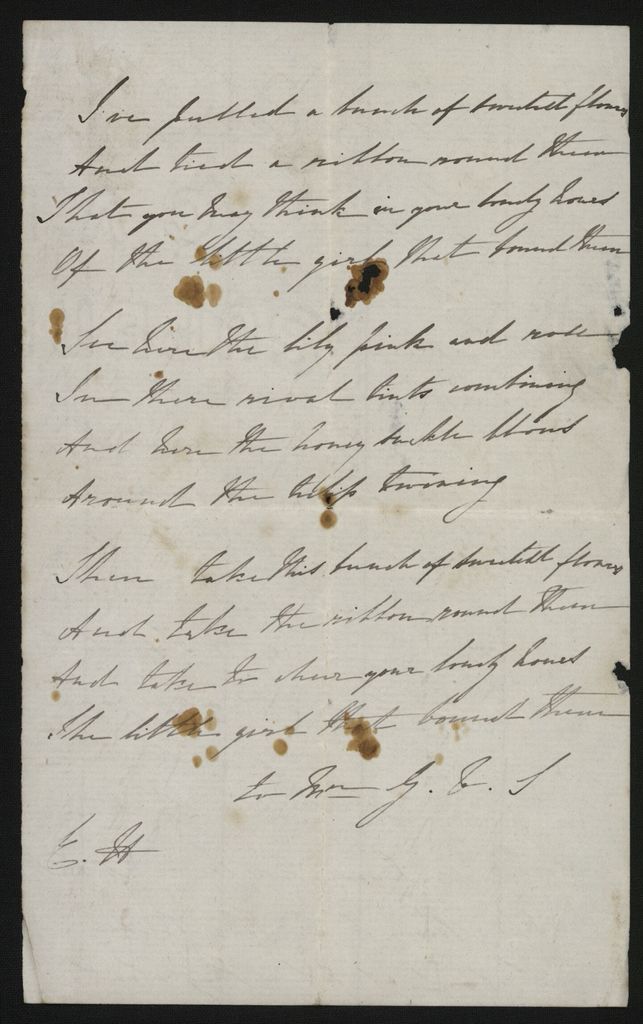 I've pulled a bunch of sweetest flowers
And tied a ribbon round them
That you may think in your lonely hours
Of the little girl that bound them
See here the lily pink and rose
In there rival tints combining
And here the honey suckle blows
Around the tulip twining
Then take this bunch of sweetest flowers
And take the ribbon round them
And take to cheer your lonely hours
The little girl that bound them
to Mr G. T. S
E. H